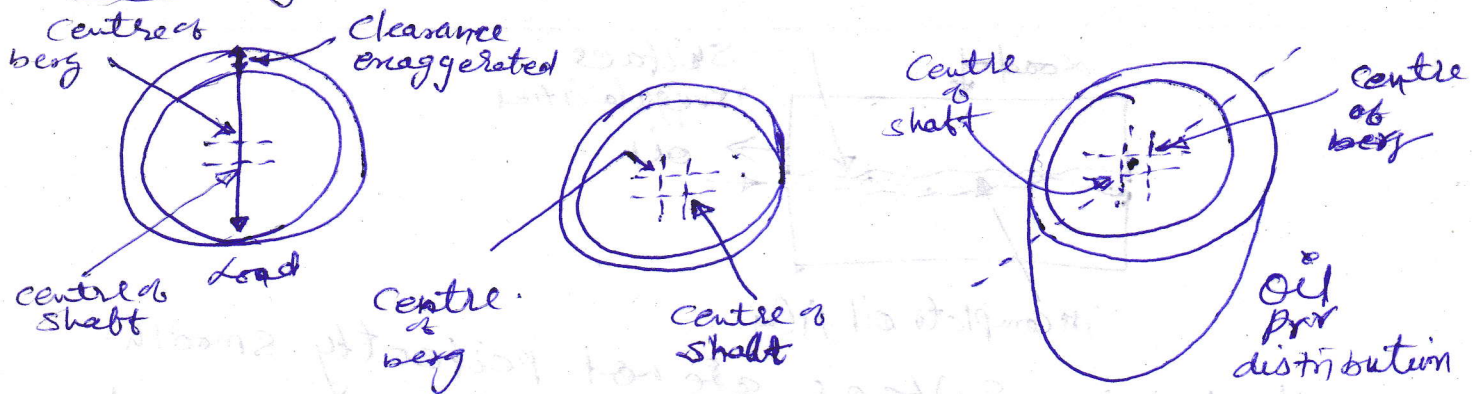 Centre of
berg
Clearance
exaggerated
Centre of
shaft
Load
Centre
of
berg
Centre of
shaft
Centre
of
shaft
Centre
of
berg
Oil
prr
distribution